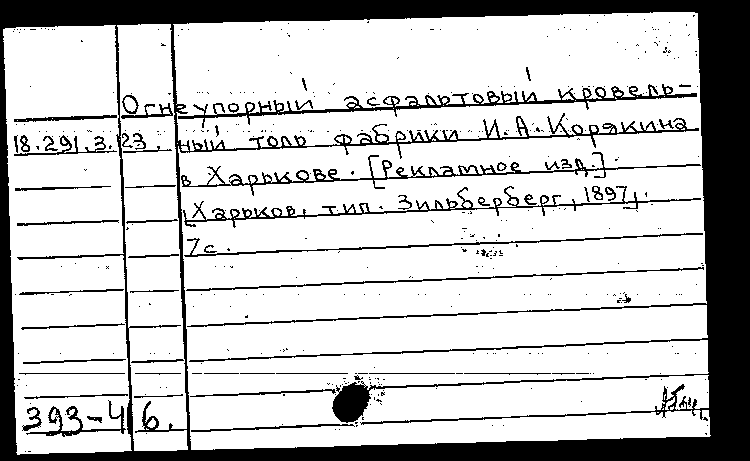 Огнеупорный асфальтовый кровель-
18.291.3.123. ный толь фабрики И.А.Корякина
в Харькове. [Рекламное изд.].
[Харьков, тип. Зильберберг, 1897].
7с.
393-46.